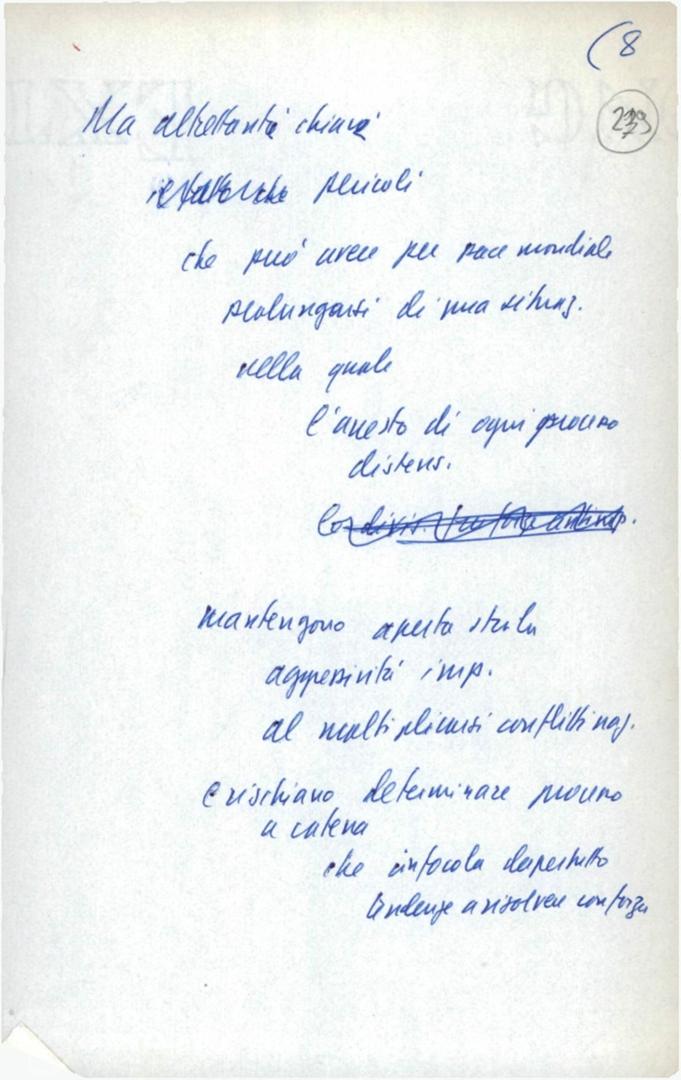 (8
239
Ma altrettanto chiari
il fatto che pericoli
che può avere per pace mondiale
prolungarsi di una situaz.
nella quale
l'arresto di ogni processo
distens.
mantengono aperta strada
aggressività imp.
al moltiplicarsi conflitti naz.
e rischiano determinare processo
a catena
che infocola dapertutto
tendenze a risolvere con forza